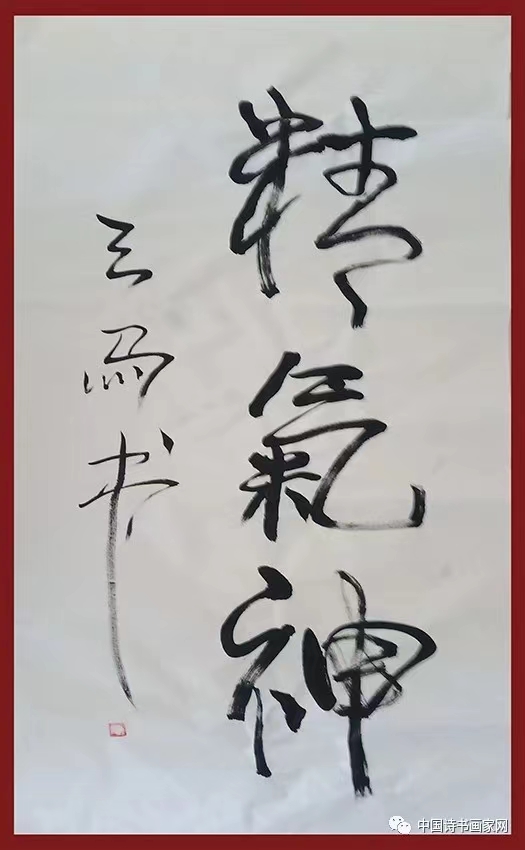 精氣神
三马书
中国诗书画家网